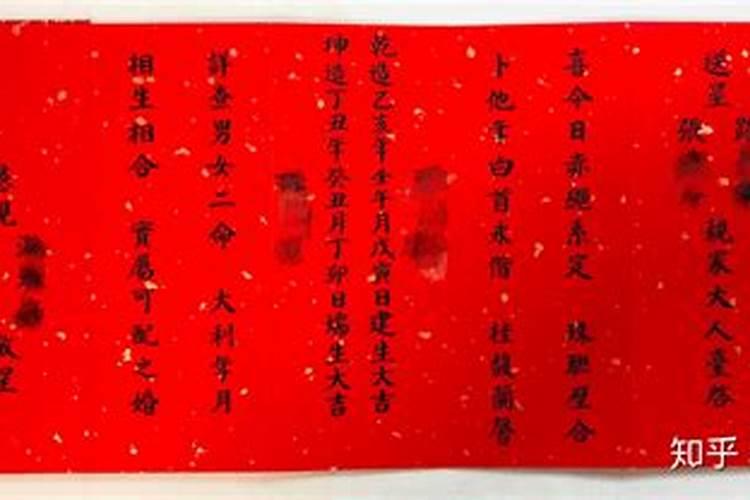 送呈 張 親家大人臺啓
喜今日赤繩系定 珠聯璧合
卜他年白首永偕 桂馥蘭馨
乾造乙亥年壬午月戊寅日建生大吉
坤造丁丑年癸丑月丁卯日瑞生大吉
詳查男女二命 大利年月
相生相合 實屬可配之婚
敬呈
知乎